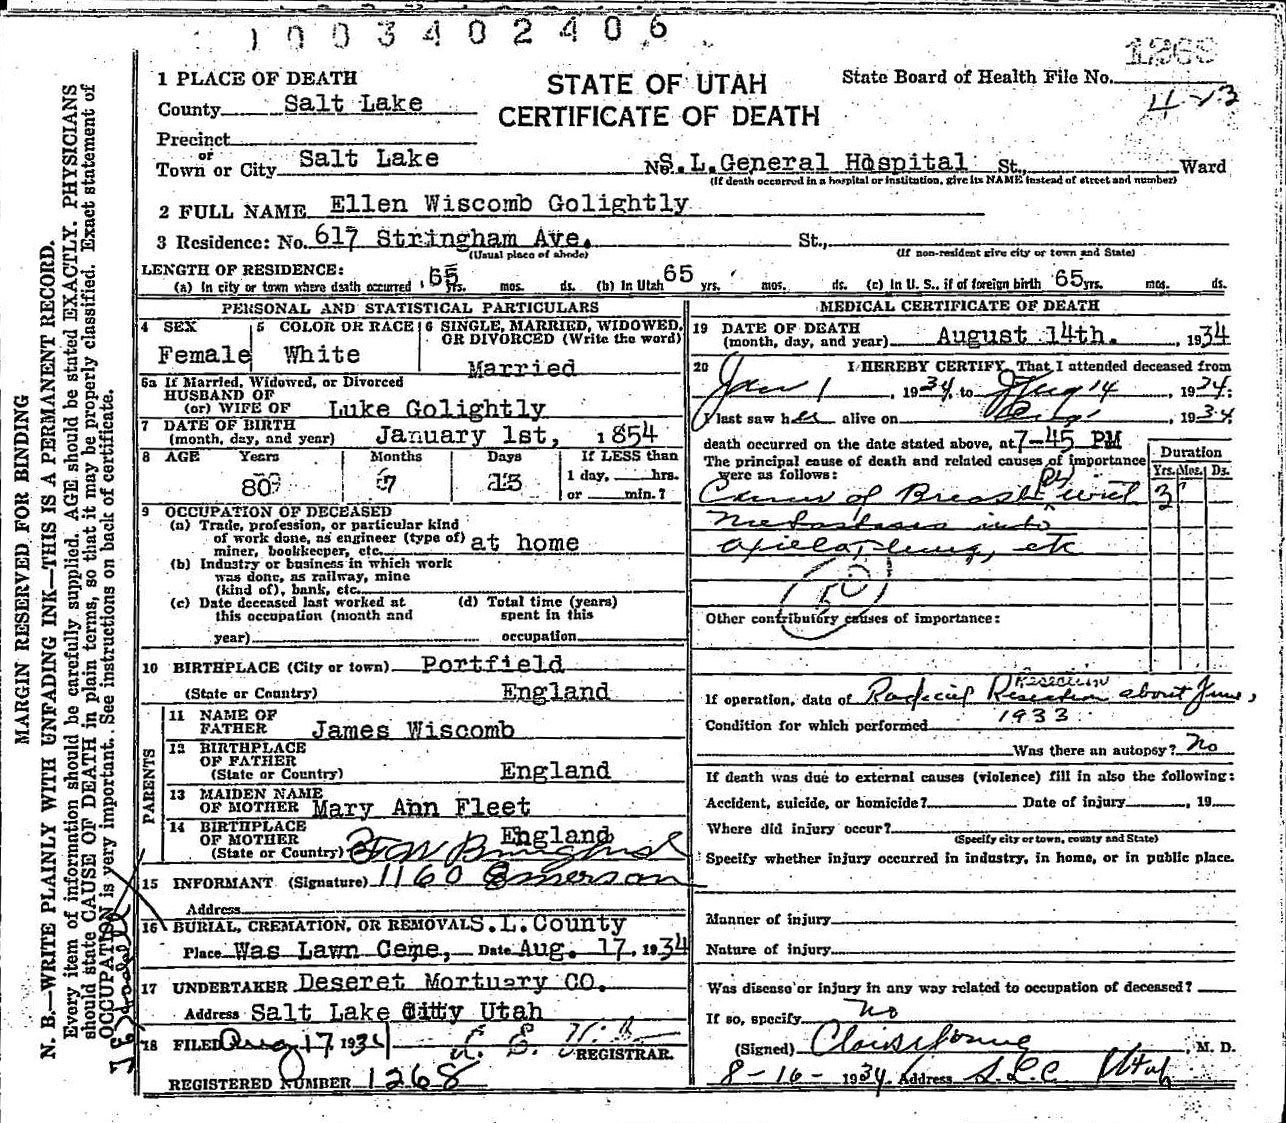 1003402406
1268
1 PLACE OF DEATH
STATE OF UTAH
CERTIFICATE OF DEATH
State Board of Health File No.
County Salt Lake
Precinct
or
Town or City Salt Lake No. S.L.General Hospital St., Ward
(If death occurred in a hospital or institution, give its NAME instead of street and number)
2 FULL NAME Ellen Wiscomb Golightly
3 Residence: No. 617 Stringham Ave. St.,
(Usual place of abode) (If non-resident give city or town and State)
LENGTH OF RESIDENCE:
(a) In city or town where death occurred 65 yrs. mos. ds. (b) In Utah 65 yrs. mos. ds. (c) In U. S., if of foreign birth 65 yrs. mos. ds.
PERSONAL AND STATISTICAL PARTICULARS
4 SEX Female
5 COLOR OR RACE White
6 SINGLE, MARRIED, WIDOWED, OR DIVORCED (Write the word) Married
6a If Married, Widowed, or Divorced
HUSBAND OF
(or) WIFE OF Luke Golightly
7 DATE OF BIRTH
(month, day, and year) January 1st, 1854
8 AGE Years Months Days If LESS than
80 7 13 1 day, hrs.
or min.?
9 OCCUPATION OF DECEASED
(a) Trade, profession, or particular kind
of work done, as engineer (type of)
miner, bookkeeper, etc. at home
(b) Industry or business in which work
was done, as railway, mine
(kind of), bank, etc.
(c) Date deceased last worked at
this occupation (month and
year)
(d) Total time (years)
spent in this
occupation
10 BIRTHPLACE (City or town) Portfield
(State or Country) England
PARENTS
11 NAME OF
FATHER James Wiscomb
12 BIRTHPLACE
OF FATHER
(State or Country) England
13 MAIDEN NAME
OF MOTHER Mary Ann Fleet
14 BIRTHPLACE
OF MOTHER
(State or Country) England
15 INFORMANT (Signature)
1160 Emerson
Address
16 BURIAL, CREMATION, OR REMOVAL S.L.County
Place Was Lawn Ceme, Date Aug. 17, 1934
17 UNDERTAKER Deseret Mortuary CO.
Address Salt Lake City Utah
18 FILED Aug 17 1934
REGISTRAR.
REGISTERED NUMBER 1268
MEDICAL CERTIFICATE OF DEATH
19 DATE OF DEATH
(month, day, and year) August 14th. , 1934
20 I HEREBY CERTIFY, That I attended deceased from
Jan 1 , 1934, to Aug 14 , 1934:
I last saw her alive on , 1934
death occurred on the date stated above, at 7-45 PM
The principal cause of death and related causes of importance
were as follows:
Duration
Yrs. Mos. Ds.
Cancer of Breast with 3
metastasis into
axilla, lung, etc
50
Other contributory causes of importance:
Resection
If operation, date of Radical Resection about June,
1933
Condition for which performed
Was there an autopsy? No
If death was due to external causes (violence) fill in also the following:
Accident, suicide, or homicide? Date of injury , 19
Where did injury occur?
(Specify city or town, county and State)
Specify whether injury occurred in industry, in home, or in public place.
Manner of injury
Nature of injury
Was disease or injury in any way related to occupation of deceased?
If so, specify No
(Signed) , M. D.
8-16- 1934 Address S.L.C. Utah
MARGIN RESERVED FOR BINDING
N. B.—WRITE PLAINLY WITH UNFADING INK—THIS IS A PERMANENT RECORD.
Every item of information should be carefully supplied. AGE should be stated EXACTLY. PHYSICIANS
should state CAUSE OF DEATH in plain terms, so that it may be properly classified. Exact statement of
OCCUPATION is very important. See instructions on back of certificate.